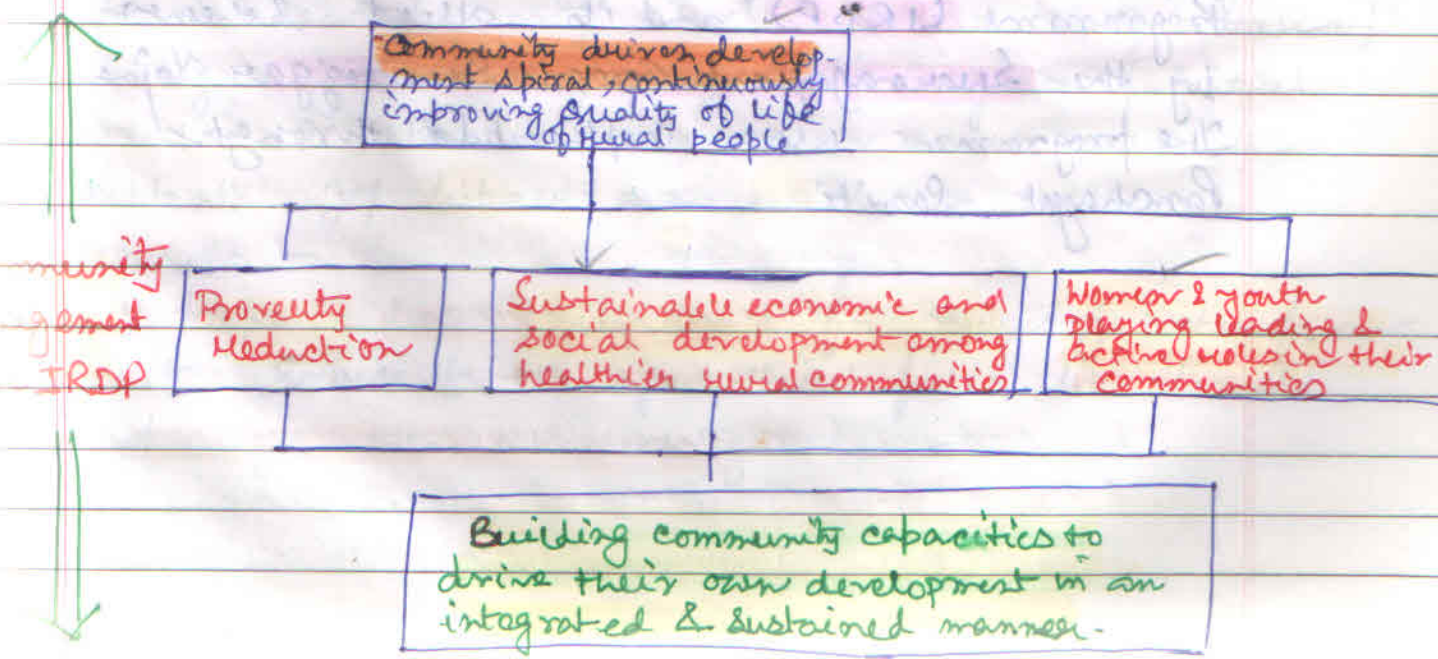 Community driven develop-
ment spiral, continuously
improving quality of life
of rural people
munity
gement
IRDP
Proveuty
Reduction
Sustainable economic and
social development among
healthier rural communities
Women & youth
playing leading &
active roles in their
communities
Building community capacities to
drive their own development in an
integrated & sustained manner.